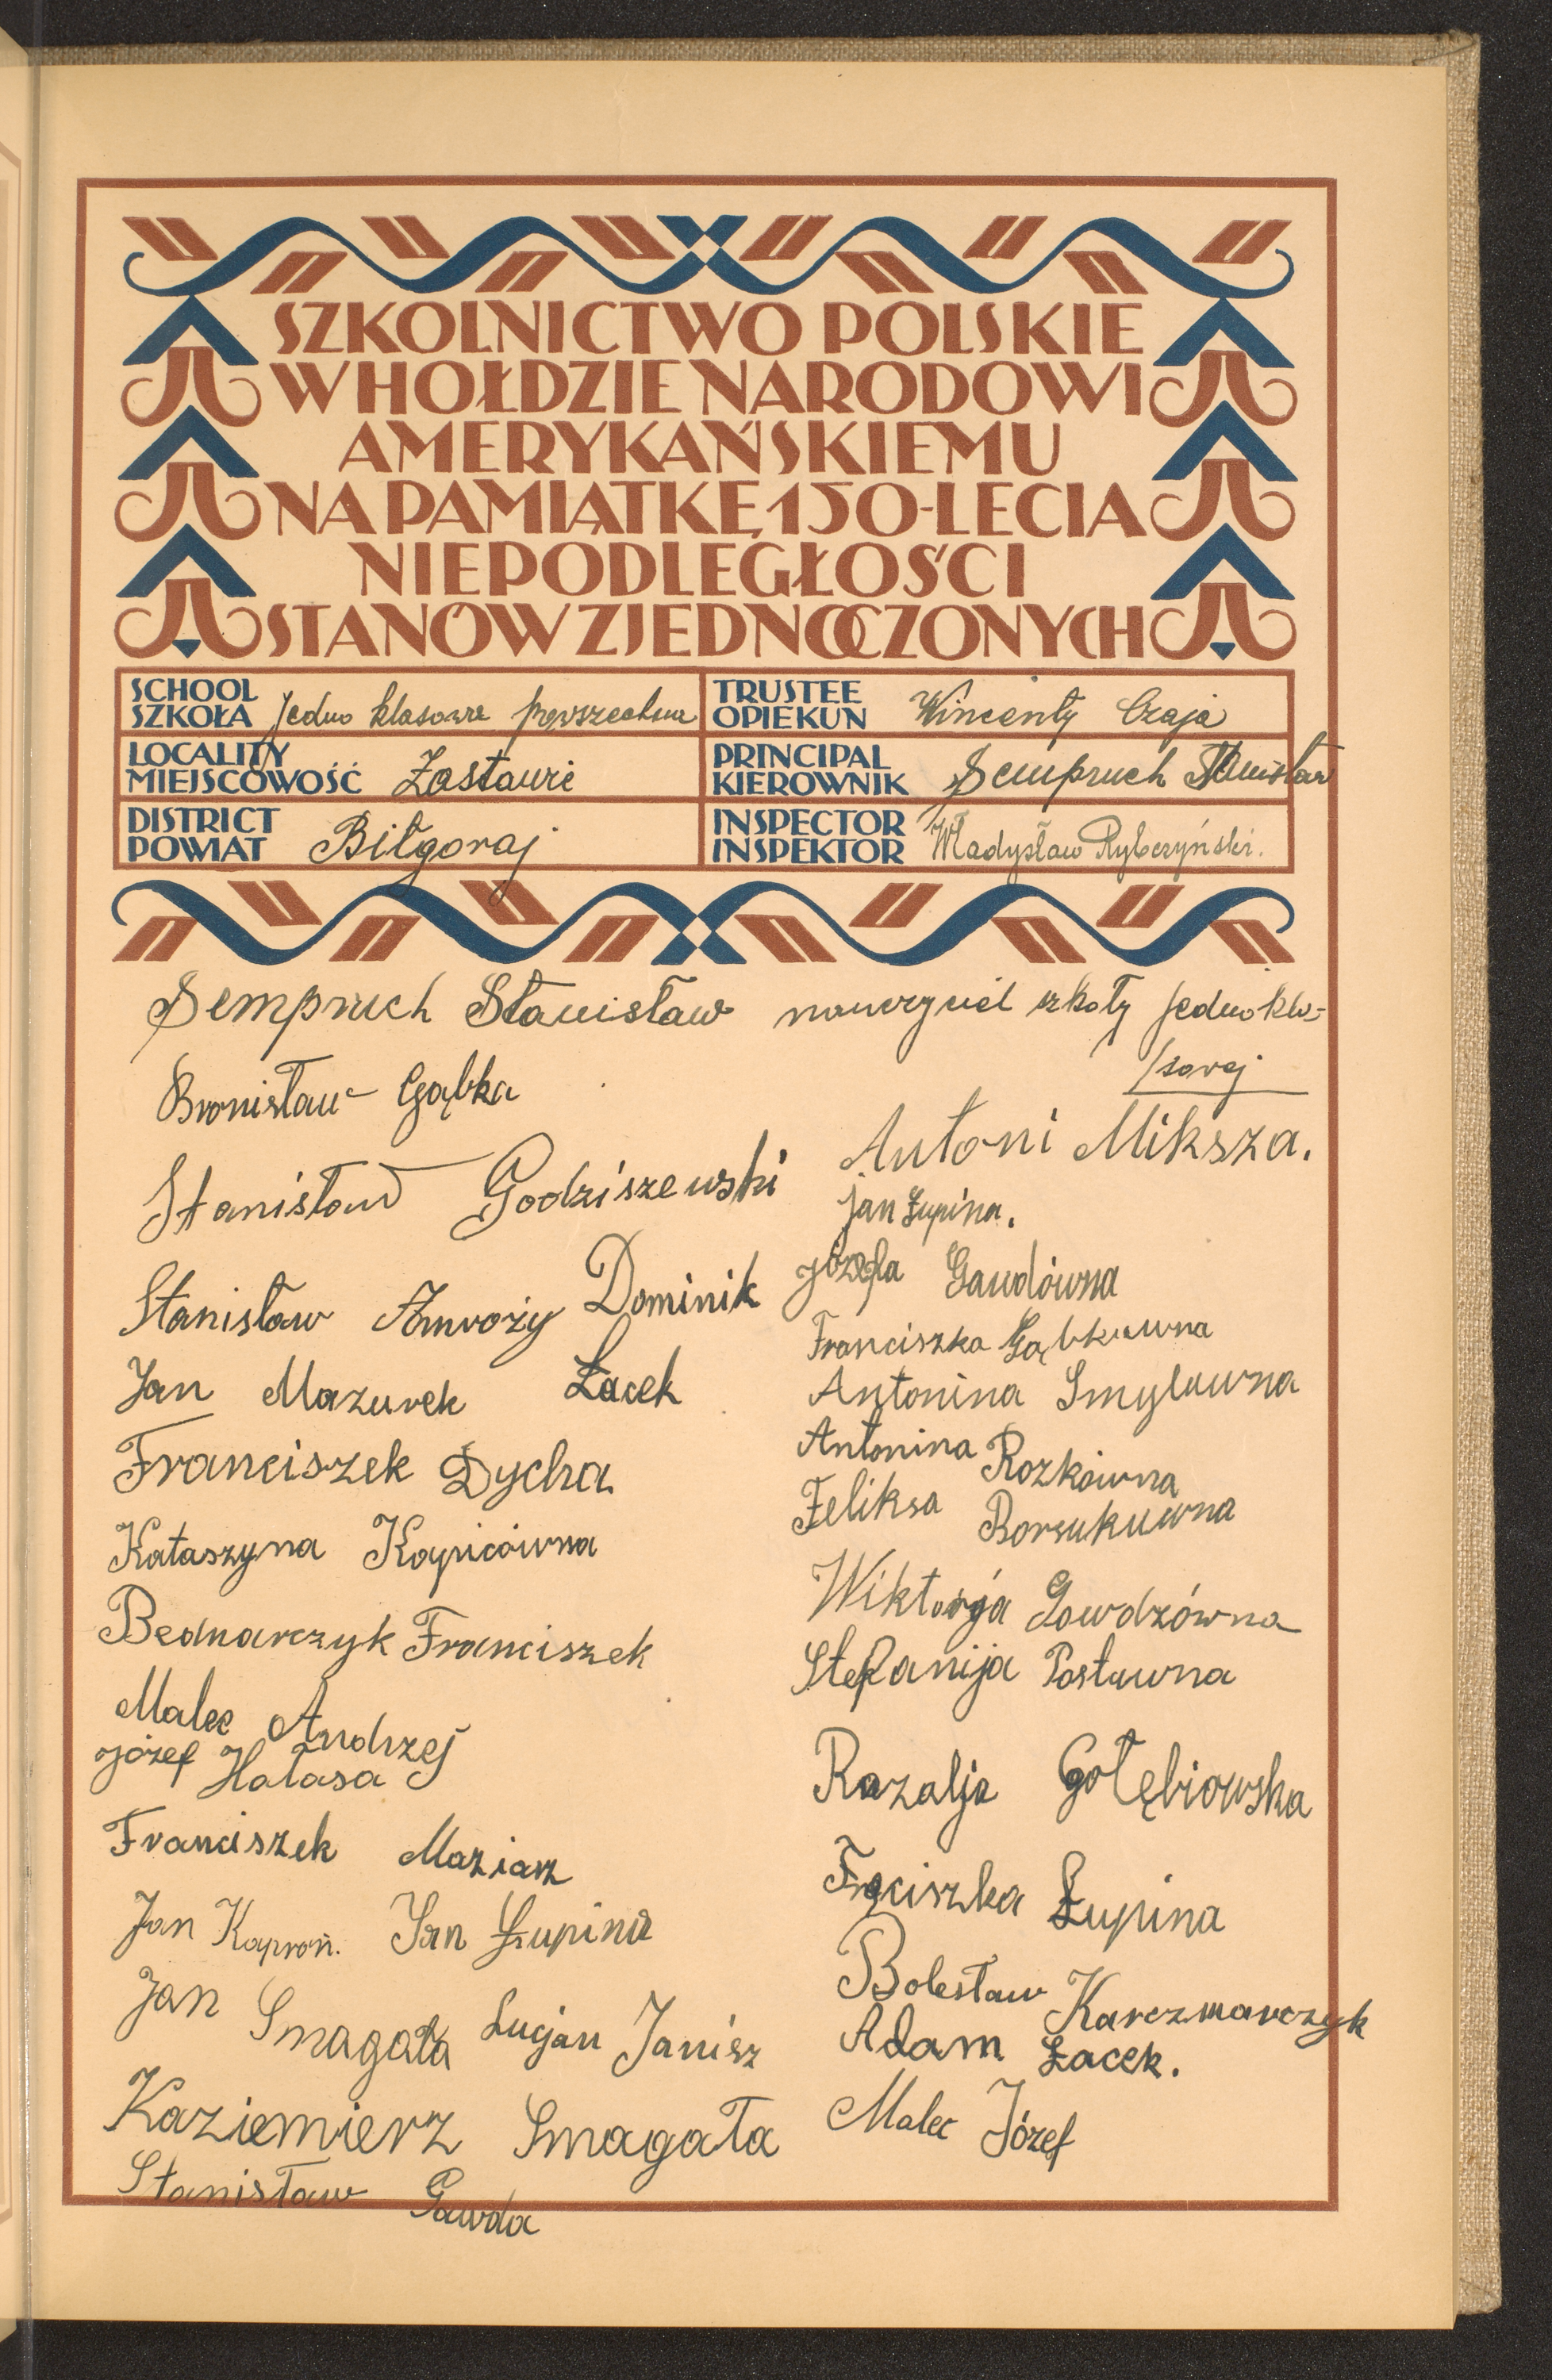 SZKOLNICTWO POLSKIE
W HOŁDZIE NARODOWI
AMERYKAŃSKIEMU
NA PAMIĄTKĘ 150-LECIA
NIEPODLEGŁOŚCI
STANÓW ZJEDNOCZONYCH
SCHOOL
SZKOŁA Jedno klasowa powszechna
TRUSTEE
OPIEKUN Wincenty Czaja
LOCALITY
MIEJSCOWOŚĆ Zastawie
PRINCIPAL
KIEROWNIK Sempruch Stanisław
DISTRICT
POWIAT Biłgoraj
INSPECTOR
INSPEKTOR Władysław Rybczyński.
Sempruch Stanisław nauczyciel szkoły jednokla-
/sowej
Bronisław Gąbka
Stanisław Godziszewski
Stanisław Amroży
Dominik
Łacek
Jan Mazurek
Franciszek Dycha
Kataszyna Kapicówna
Bednarczyk Franciszek
Malec Andrzej
Józef Hałasa
Franciszek Maziarz
Jan Kaproń. Jan Łupina
Jan Smagała Lucjan Janisz
Kaziemierz Smagała
Stanisław Gawda
Antoni Miksza.
Jan Łupina.
Józefa Gawdówna
Franciszka Gąbkuwna
Antonina Smyluwna
Antonina Rozkówna
Feliksa Borsukuwna
Wiktorja Gawdzówna
Stefanija Postuwna
Razalja Gołębiowska
Frąciszka Łupina
Bolesław Karczmarczyk
Adam Łacek.
Malec Józef